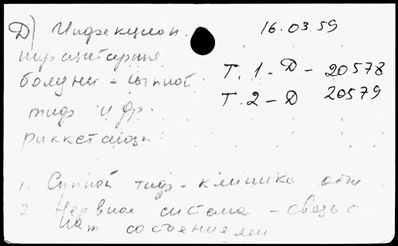 Д) Инфекцион.
16.03.59
паразитарные
болезни - сыпной
Т. 1-Д - 20578
тиф и др.
Т. 2-Д 20579
риккетсиозы
1. Сыпной тиф - клиника
2 Нервная система - связь с
пат состоянием.